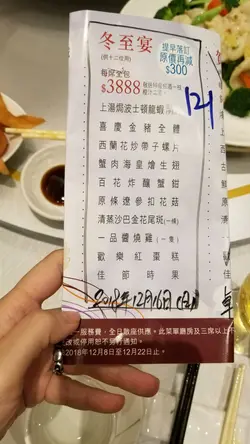 冬至宴
(供十二位用)
提早落訂
原價再減
$300
每席全包
$3888
121
上湯焗波士頓龍蝦
喜慶金豬全體
西蘭花炒帶子螺片
蟹肉海皇燴生翅
百花炸釀蟹鉗
原條遼參扣花菇
清蒸沙巴金花尾斑(一條)
一品醬燒雞(一隻)
歡樂紅棗糕
佳節時果
2018年12月16日
一服務費，全日雅座供應。此菜單廳房及三席以上不
改或停用恕不另行通知。
2018年12月8日至12月22日止。